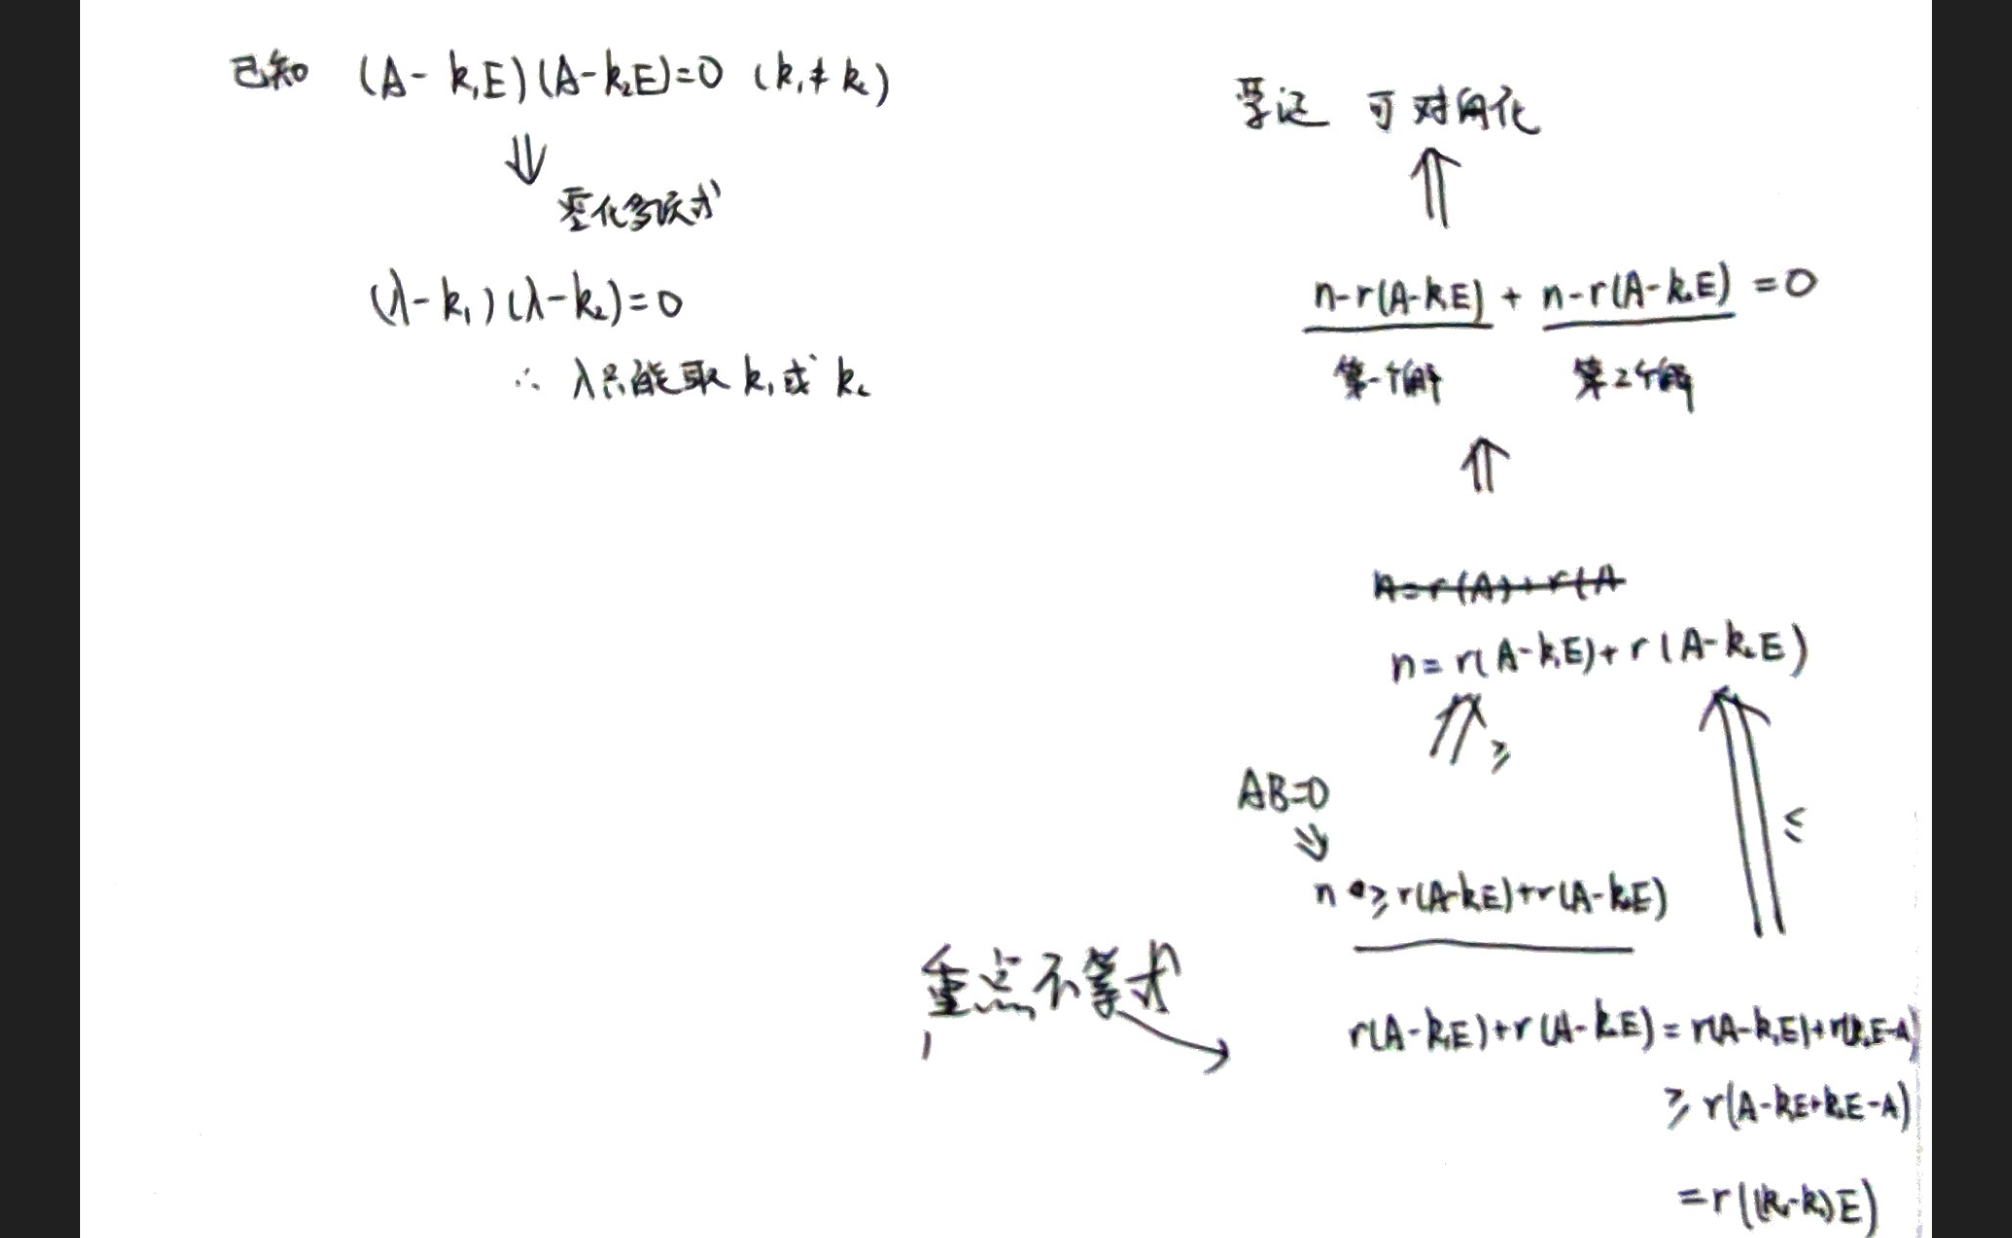 已知 (A-k₁E)(A-k₂E)=0 (k₁≠k₂)
⇓
零化多项式
(λ-k₁)(λ-k₂)=0
∴ λ只能取 k₁或 k₂
要证 可对角化
⇑
n-r(A-k₁E) + n-r(A-k₂E) =0
第一个解 第2个解
⇑
n=r(A)+r(A
n= r(A-k₁E)+ r(A-k₂E)
⇑ ≥ ⇑ ≤
AB=0
⇓
n ≥ r(A-k₁E)+r(A-k₂E)
重点不等式
r(A-k₁E)+r(A-k₂E)= r(A-k₁E)+r(k₂E-A)
≥ r(A-k₁E+k₂E-A)
=r((k₂-k₁)E)